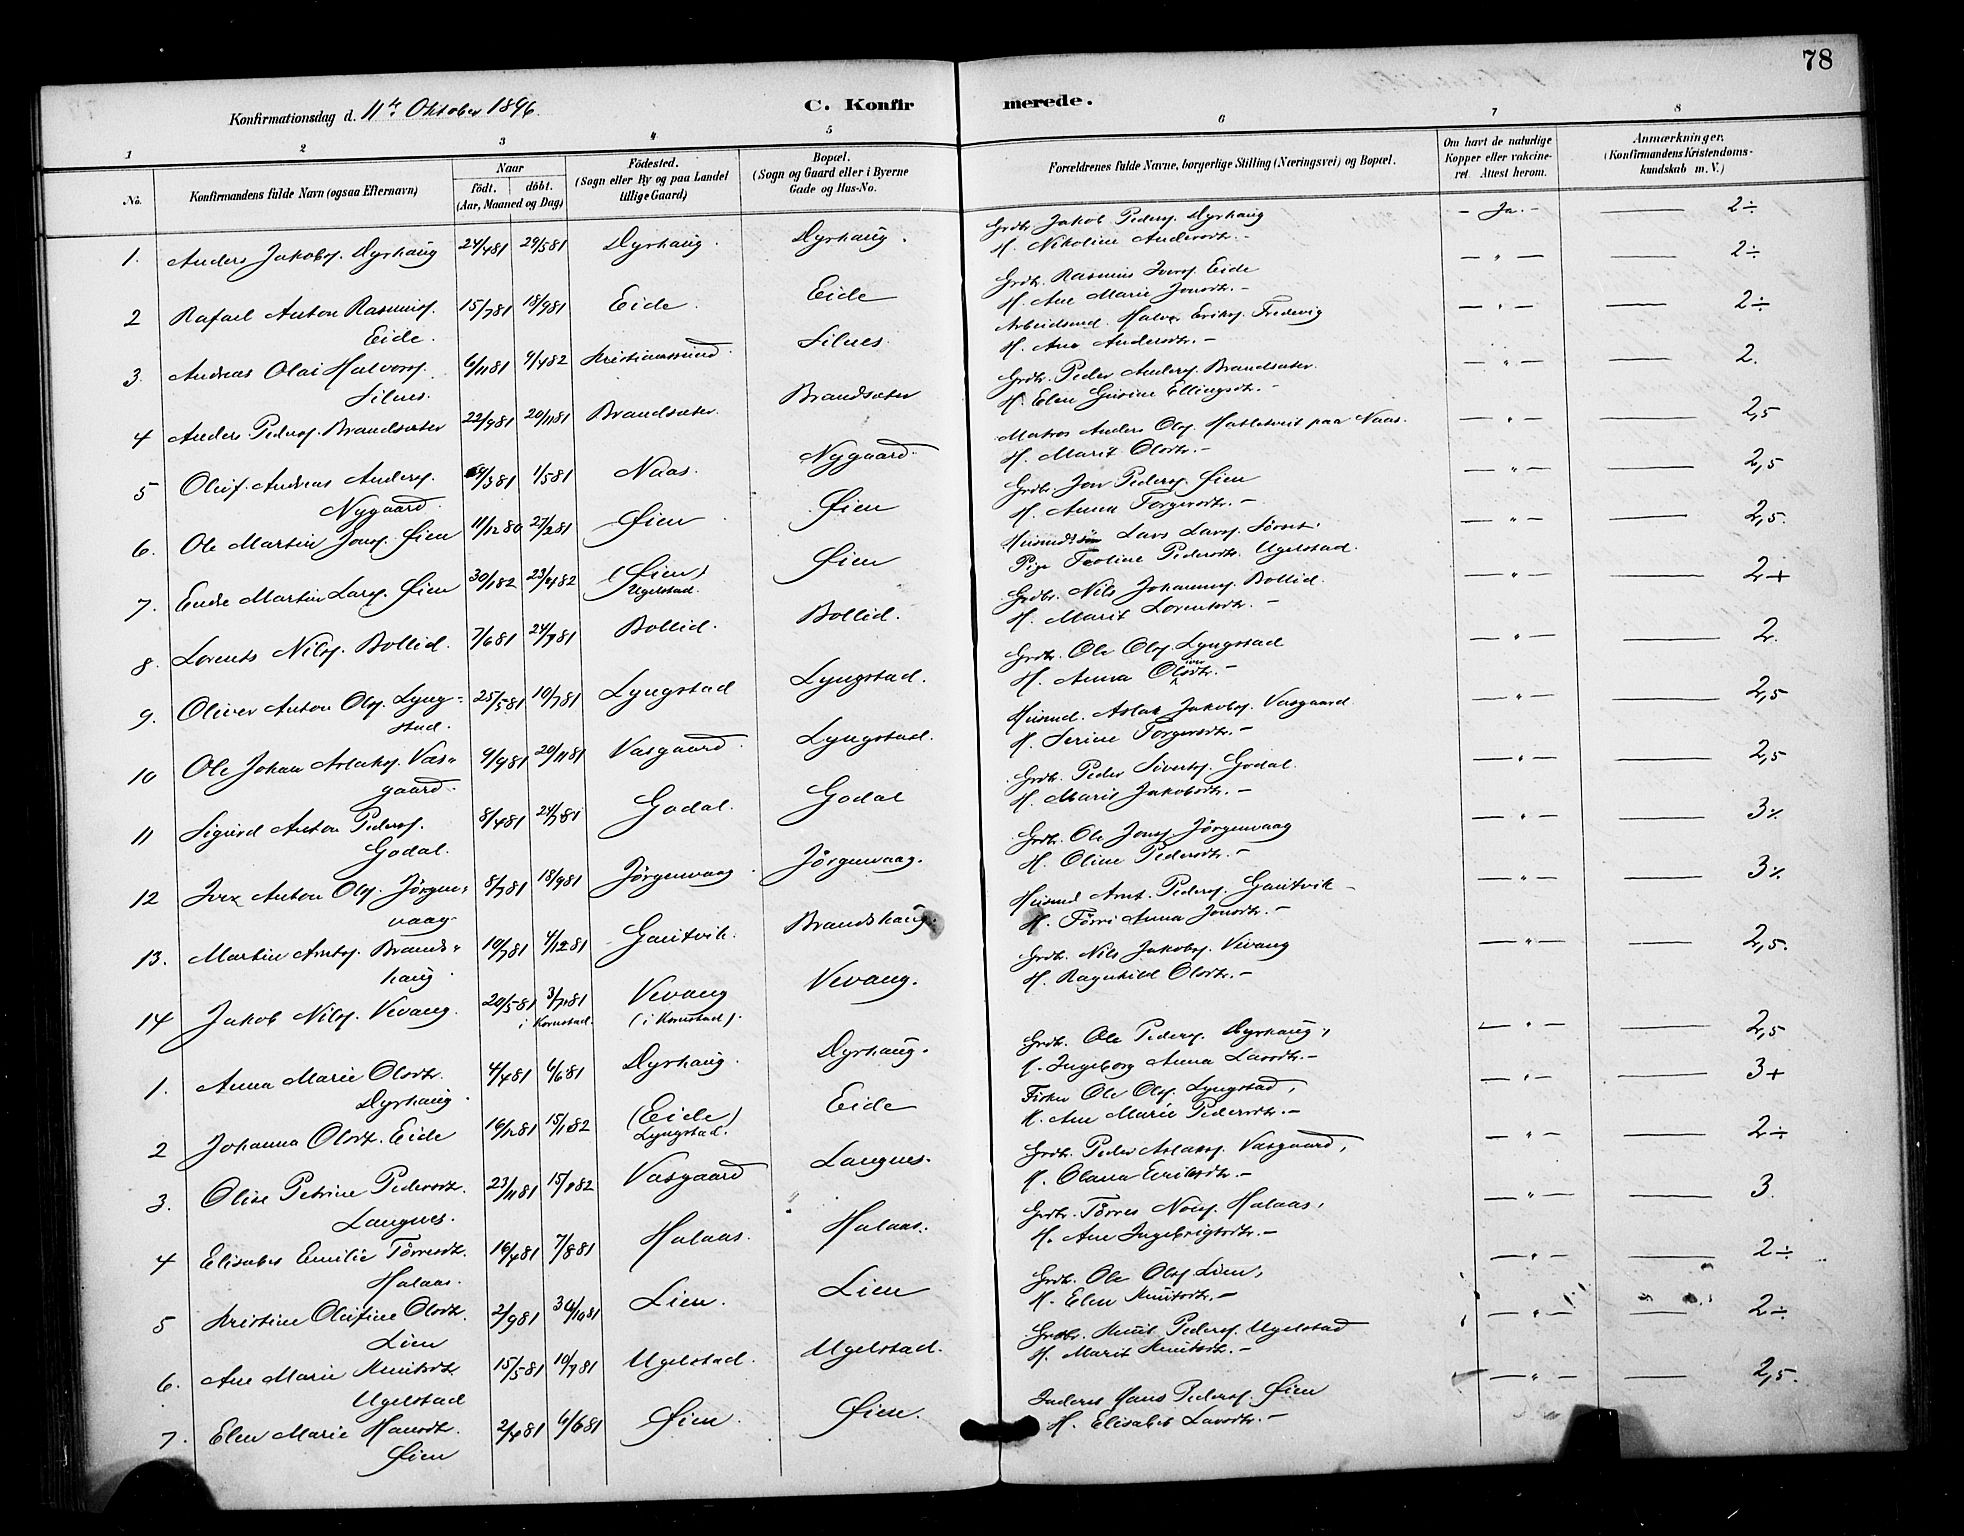 78
Konfirmationsdag d. 11te Oktober 1896.
C. Konfirmerede.
1 2 3 4 5 6 7 8
No. Konfirmandens fulde Navn (ogsaa Efternavn) Naar født. døbt. (Aar, Maaned og Dag) Fødested. (Sogn eller By og paa Landet tillige Gaard) Bopæl. (Sogn og Gaard eller i Byerne Gade og Hus-No. Forældrenes fulde Navne, borgerlige Stilling (Næringsvei) og Bopæl. Om havt de naturlige Kopper eller vakcineret. Attest herom. Anmærkninger. (Konfirmandens Kristendomskundskab m. V.)
1. Anders Jakobs. Dyrhaug 24/4 81 29/5 81 Dyrhaug. Dyrhaug. Grdbr. Jakob Peders. Dyrhaug - Ja. - 2÷
H. Nikoline Andersdtr. -
2 Rafael Anton Rasmuss. 15/7 81 18/9 81 Eide. Eide Grdbr. Rasmus Ivers. Eide - " - 2÷
Eide. H. Ane Marie Jonsdtr. -
3. Andreas Olai Halvors. 6/11 81 9/4 82 Kristianssund. Silnes. Arbeidsmd. Halvor Eriks. Fredvig - " - 2÷
Silnes. H. Ane Andersdtr. -
4 Anders Peders. Brandsæter 22/9 81 20/11 81 Brandsæter. Brandsæter Grdbr. Peder Anders. Brandsæter. - " - 2.
H. Elen Gurine Ellingsdtr. -
5 Oluf Andreas Anders. /3 81 1/5 81 Naas. Nygaard. Matros Anders Ols. Hatletveit paa Naas. - " - 2,5
Nygaard. H. Marit Olsdtr. -
6. Ole Martin Jons. Øien 11/12 80 27/2 81 Øien Øien Grdbr. Jon Peders. Øien - " - 2,5
H. Anna Torgersdtr. -
7. Endre Martin Lars. Øien 30/1 82 23/4 82 (Øien) Øien Lars Lars. - " - 2,5.
Ugelstad. Pige Pedersdtr. Ugelstad.
8. Lorents Nils. Bollid. 7/6 81 24/7 81 Bollid. Bollid. Grdbr. Nils Johanness. Bollid. - " - 2+
H. Marit Lorentsdtr. -
9. Oliver Anton Ols. Lyng- 25/5 81 10/7 81 Lyngstad Lyngstad. Grdbr. Ole Ols. Lyngstad - " - 2.
stad. H. Anna Oliversdtr. -
10 Ole Johan Aslaks. Vas- 9/9 81 20/11 81 Vasgaard. Lyngstad. Husmd. Aslak Jakobs. Vasgaard - " - 2,5
gaard. H. Serine Torgersdtr. -
11 Sigurd Anton Peders. 8/4 81 24/7 81 Godal. Godal Grdbr. Peder Siverts. Godal. - " - 2,5
Godal. H. Marit Jakobsdtr. -
12 Iver Anton Ols. Jørgen- 8/7 81 18/9 81 Jørgenvaag. Jørgenvaag. Grdbr. Ole Jons. Jørgenvaag - " - 3%
vaag. H. Oline Pedersdtr. -
13. Martin Arnts. Brands- 10/7 81 4/12 81 Gautvik. Brandshaug. Husmd Arnt. Peders. Gautvik - - " - 3%
haug. H. Anna Jonsdtr. -
14 Jakob Nils. Vevang. 20/5 81 3/7 81 Vevang Vevang. Grdbr. Nils Jakobs. Vevang - " - 2,5.
i Kornstad. (i Kornstad). H. Ragnhild Olsdtr. -
1. Anna Marie Olsdtr. 4/4 81 6/6 81 Dyrhaug. Dyrhaug. Grdbr. Ole Peders. Dyrhaug, - " - 2,5
Dyrhaug. Ingeborg Anna Larsdtr. -
2 Johanna Olsdtr. Eide 16/12 81 15/1 82 (Eide) Eide Fisker Ole Ols. Lyngstad, - " - 3+
Lyngstad. H. Ane Marie Pedersdtr. -
3. Olise Petrine Pedersdtr. 23/11 81 15/1 82 Vasgaard Langnes. Grdbr. Peder Aslaks. Vasgaard, - " - 2÷
Langnes. H. Olava Eriksdtr. -
4 Elisabet Emilie Tørresdtr. 16/4 81 7/8 81 Halaas. Halaas. Grdbr. Tørres Halaas, - " - 3.
Halaas. H. Ane Ingebrigtsdtr. -
5 Kristine Olufine Olsdtr. 2/9 81 30/10 81 Lien. Lien Grdbr. Ole Ols. Lien, - " - 2÷
Lien H. Elen Knutsdtr. -
6. Ane Marie Knutsdtr. 15/5 81 10/7 81 Ugelstad. Ugelstad. Grdbr. Knut Peders. Ugelstad - " - 2÷
Ugelstad H. Marit Knutsdtr. -
7. Elen Marie Hansdtr. 2/4 81 6/6 81 Øien. Øien. Inderst Hans Peders. Øien - " - 2,5.
Øien H. Elisabet Larsdtr. -